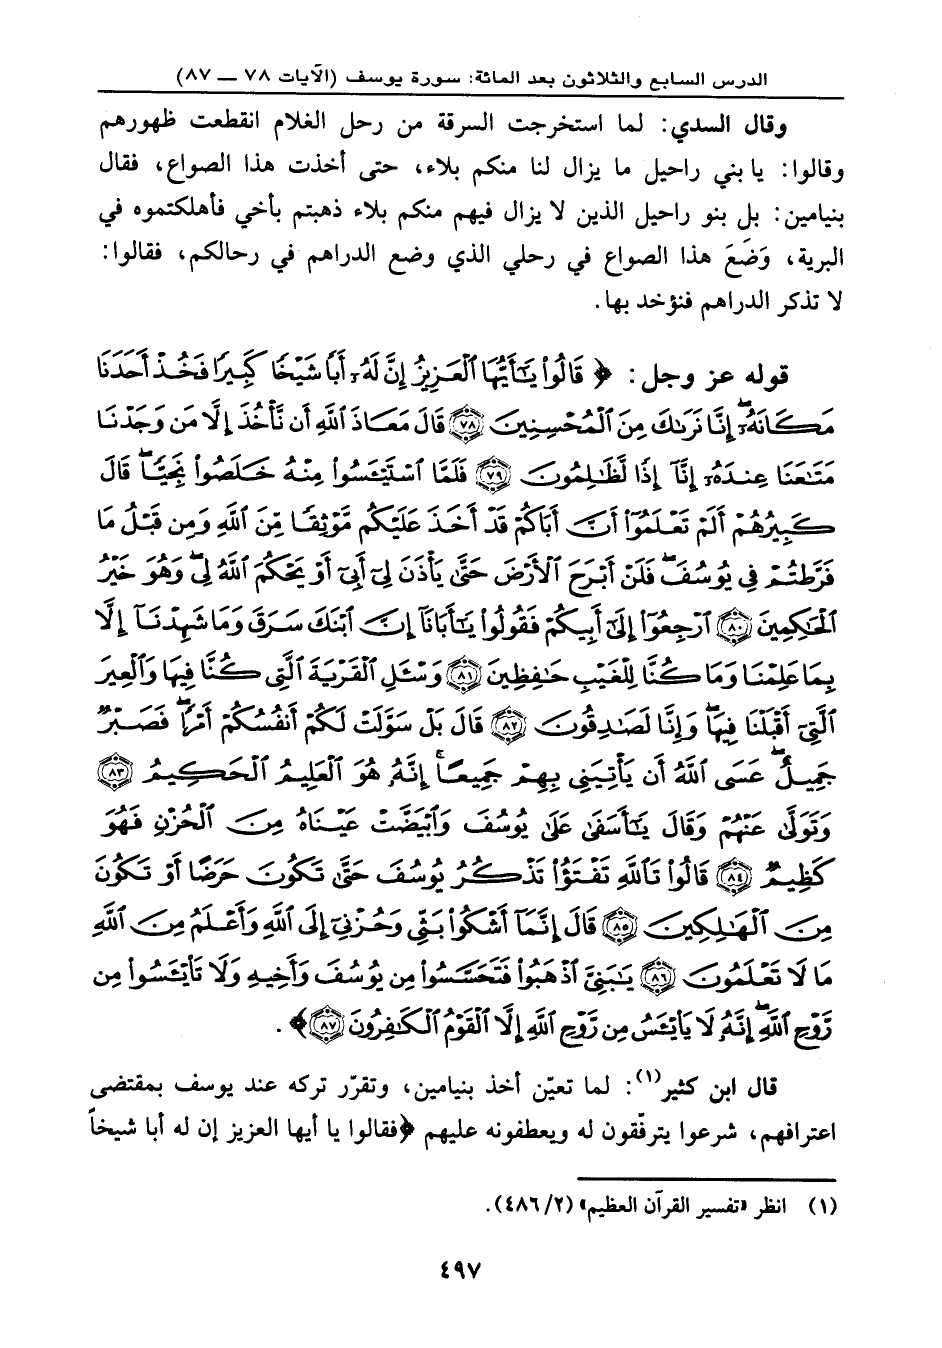 الدرس السابع والثلاثون بعد المائة: سورة يوسف (الآيات ٧٨ — ٨٧)
وقال السدي: لما استخرجت السرقة من رحل الغلام انقطعت ظهورهم
وقالوا: يا بني راحيل ما يزال لنا منكم بلاء، حتى أخذت هذا الصواع، فقال
بنيامين: بل بنو راحيل الذين لا يزال فيهم منكم بلاء ذهبتم بأخي فأهلكتموه في
البرية، وَضَعَ هذا الصواع في رحلي الذي وضع الدراهم في رحالكم، فقالوا:
لا تذكر الدراهم فنؤخذ بها.
قوله عز وجل: ﴿ قَالُوا۟ يَـٰٓأَيُّهَا ٱلْعَزِيزُ إِنَّ لَهُۥٓ أَبًا شَيْخًا كَبِيرًا فَخُذْ أَحَدَنَا
مَكَانَهُۥٓ ۖ إِنَّا نَرَىٰكَ مِنَ ٱلْمُحْسِنِينَ ٧٨ قَالَ مَعَاذَ ٱللَّهِ أَن نَّأْخُذَ إِلَّا مَن وَجَدْنَا
مَتَـٰعَنَا عِندَهُۥٓ إِنَّآ إِذًا لَّظَـٰلِمُونَ ٧٩ فَلَمَّا ٱسْتَيْـَٔسُوا۟ مِنْهُ خَلَصُوا۟ نَجِيًّا ۖ قَالَ
كَبِيرُهُمْ أَلَمْ تَعْلَمُوٓا۟ أَنَّ أَبَاكُمْ قَدْ أَخَذَ عَلَيْكُم مَّوْثِقًا مِّنَ ٱللَّهِ وَمِن قَبْلُ مَا
فَرَّطتُمْ فِى يُوسُفَ ۖ فَلَنْ أَبْرَحَ ٱلْأَرْضَ حَتَّىٰ يَأْذَنَ لِىٓ أَبِىٓ أَوْ يَحْكُمَ ٱللَّهُ لِى ۖ وَهُوَ خَيْرُ
ٱلْحَـٰكِمِينَ ٨٠ ٱرْجِعُوٓا۟ إِلَىٰٓ أَبِيكُمْ فَقُولُوا۟ يَـٰٓأَبَانَآ إِنَّ ٱبْنَكَ سَرَقَ وَمَا شَهِدْنَآ إِلَّا
بِمَا عَلِمْنَا وَمَا كُنَّا لِلْغَيْبِ حَـٰفِظِينَ ٨١ وَسْـَٔلِ ٱلْقَرْيَةَ ٱلَّتِى كُنَّا فِيهَا وَٱلْعِيرَ
ٱلَّتِىٓ أَقْبَلْنَا فِيهَا ۖ وَإِنَّا لَصَـٰدِقُونَ ٨٢ قَالَ بَلْ سَوَّلَتْ لَكُمْ أَنفُسُكُمْ أَمْرًا ۖ فَصَبْرٌ
جَمِيلٌ ۖ عَسَى ٱللَّهُ أَن يَأْتِيَنِى بِهِمْ جَمِيعًا ۚ إِنَّهُۥ هُوَ ٱلْعَلِيمُ ٱلْحَكِيمُ ٨٣
وَتَوَلَّىٰ عَنْهُمْ وَقَالَ يَـٰٓأَسَفَىٰ عَلَىٰ يُوسُفَ وَٱبْيَضَّتْ عَيْنَاهُ مِنَ ٱلْحُزْنِ فَهُوَ
كَظِيمٌ ٨٤ قَالُوا۟ تَٱللَّهِ تَفْتَؤُا۟ تَذْكُرُ يُوسُفَ حَتَّىٰ تَكُونَ حَرَضًا أَوْ تَكُونَ
مِنَ ٱلْهَـٰلِكِينَ ٨٥ قَالَ إِنَّمَآ أَشْكُوا۟ بَثِّى وَحُزْنِىٓ إِلَى ٱللَّهِ وَأَعْلَمُ مِنَ ٱللَّهِ
مَا لَا تَعْلَمُونَ ٨٦ يَـٰبَنِىَّ ٱذْهَبُوا۟ فَتَحَسَّسُوا۟ مِن يُوسُفَ وَأَخِيهِ وَلَا تَا۟يْـَٔسُوا۟ مِن
رَّوْحِ ٱللَّهِ ۖ إِنَّهُۥ لَا يَا۟يْـَٔسُ مِن رَّوْحِ ٱللَّهِ إِلَّا ٱلْقَوْمُ ٱلْكَـٰفِرُونَ ٨٧ ﴾.
قال ابن كثير(١): لما تعيّن أخذ بنيامين، وتقرّر تركه عند يوسف بمقتضى
اعترافهم، شرعوا يترفّقون له ويعطفونه عليهم ﴿فقالوا يا أيها العزيز إن له أبا شيخاً
(١) انظر «تفسير القرآن العظيم» (٢/ ٤٨٦).
٤٩٧